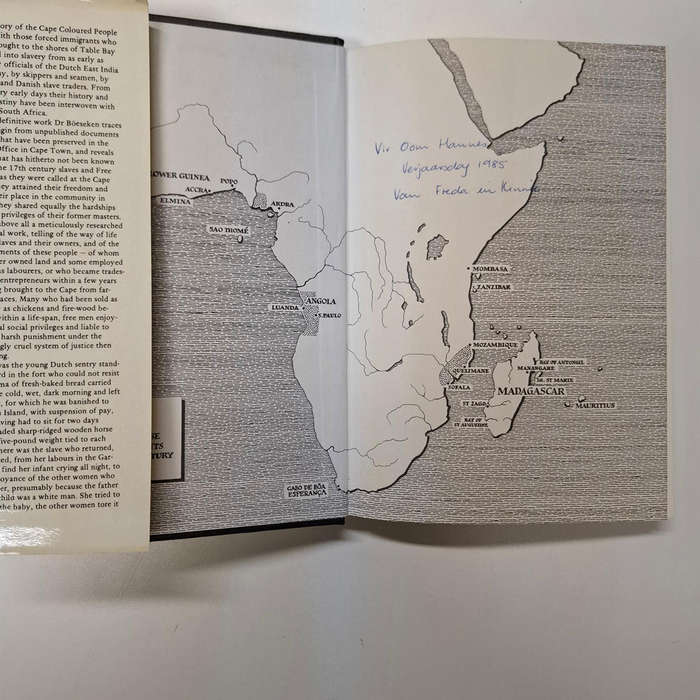 ory of the Cape Coloured People
ith those forced immigrants who
ought to the shores of Table Bay
d into slavery from as early as
officials of the Dutch East India
ny, by skippers and seamen, by
and Danish slave traders. From
ery early days their history and
stiny have been interwoven with
South Africa.
definitive work Dr Böeseken traces
igin from unpublished documents
hat have been preserved in the
Office in Cape Town, and reveals
hat has hitherto not been known
he 17th century slaves and Free
as they were called at the Cape
ey attained their freedom and
eir place in the community in
ey shared equally the hardships
privileges of their former masters.
above all a meticulously researched
al work, telling of the way of life
laves and their owners, and of the
ments of these people — of whom
er owned land and some employed
as labourers, or who became trades-
entrepreneurs within a few years
g brought to the Cape from far-
aces. Many who had been sold as
as chickens and fire-wood be-
within a life-span, free men enjoy-
al social privileges and liable to
harsh punishment under the
ngly cruel system of justice then
ng.
was the young Dutch sentry stand-
rd in the fort who could not resist
ma of fresh-baked bread carried
e cold, wet, dark morning and left
, for which he was banished to
Island, with suspension of pay,
aving had to sit for two days
aded sharp-ridged wooden horse
five-pound weight tied to each
here was the slave who returned,
ed, from her labours in the Gar-
find her infant crying all night, to
oyance of the other women who
er, presumably because the father
child was a white man. She tried to
the baby, the other women tore it
LOWER GUINEA
POPO
ACCRA
ELMINA
ARDRA
SAO THOMÉ
ANGOLA
LUANDA
S. PAULO
CABO DE BÔA
ESPERANÇA
SE
TS
TURY
Vir Oom Hannes
Verjaarsdag 1985
Van Freda en
MOMBASA
ZANZIBAR
MOZAMBIQUE
QUELIMANE
SOFALA
BAY OF ANTONGIL
MANANGARE
IR. ST MARIE
MADAGASCAR
ST JAGO
MAURITIUS
BAY OF
ST AUGUSTINE